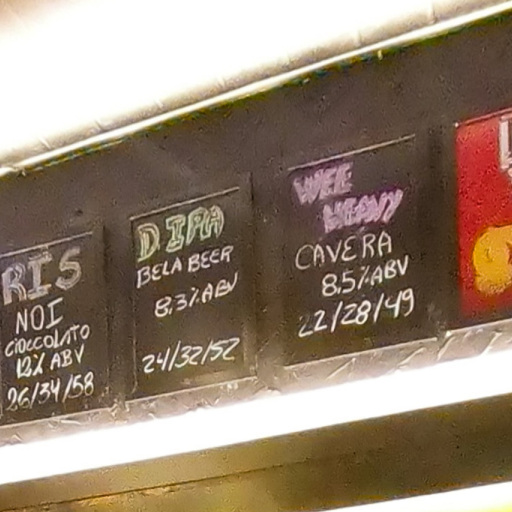 RIS
NOI
CIOCCOLATO
12% ABV
26/34/58
D.IPA
BELA BEER
8.3% ABV
24/32/52
WEE
HEAVY
CAVERA
8.5% ABV
22/28/49